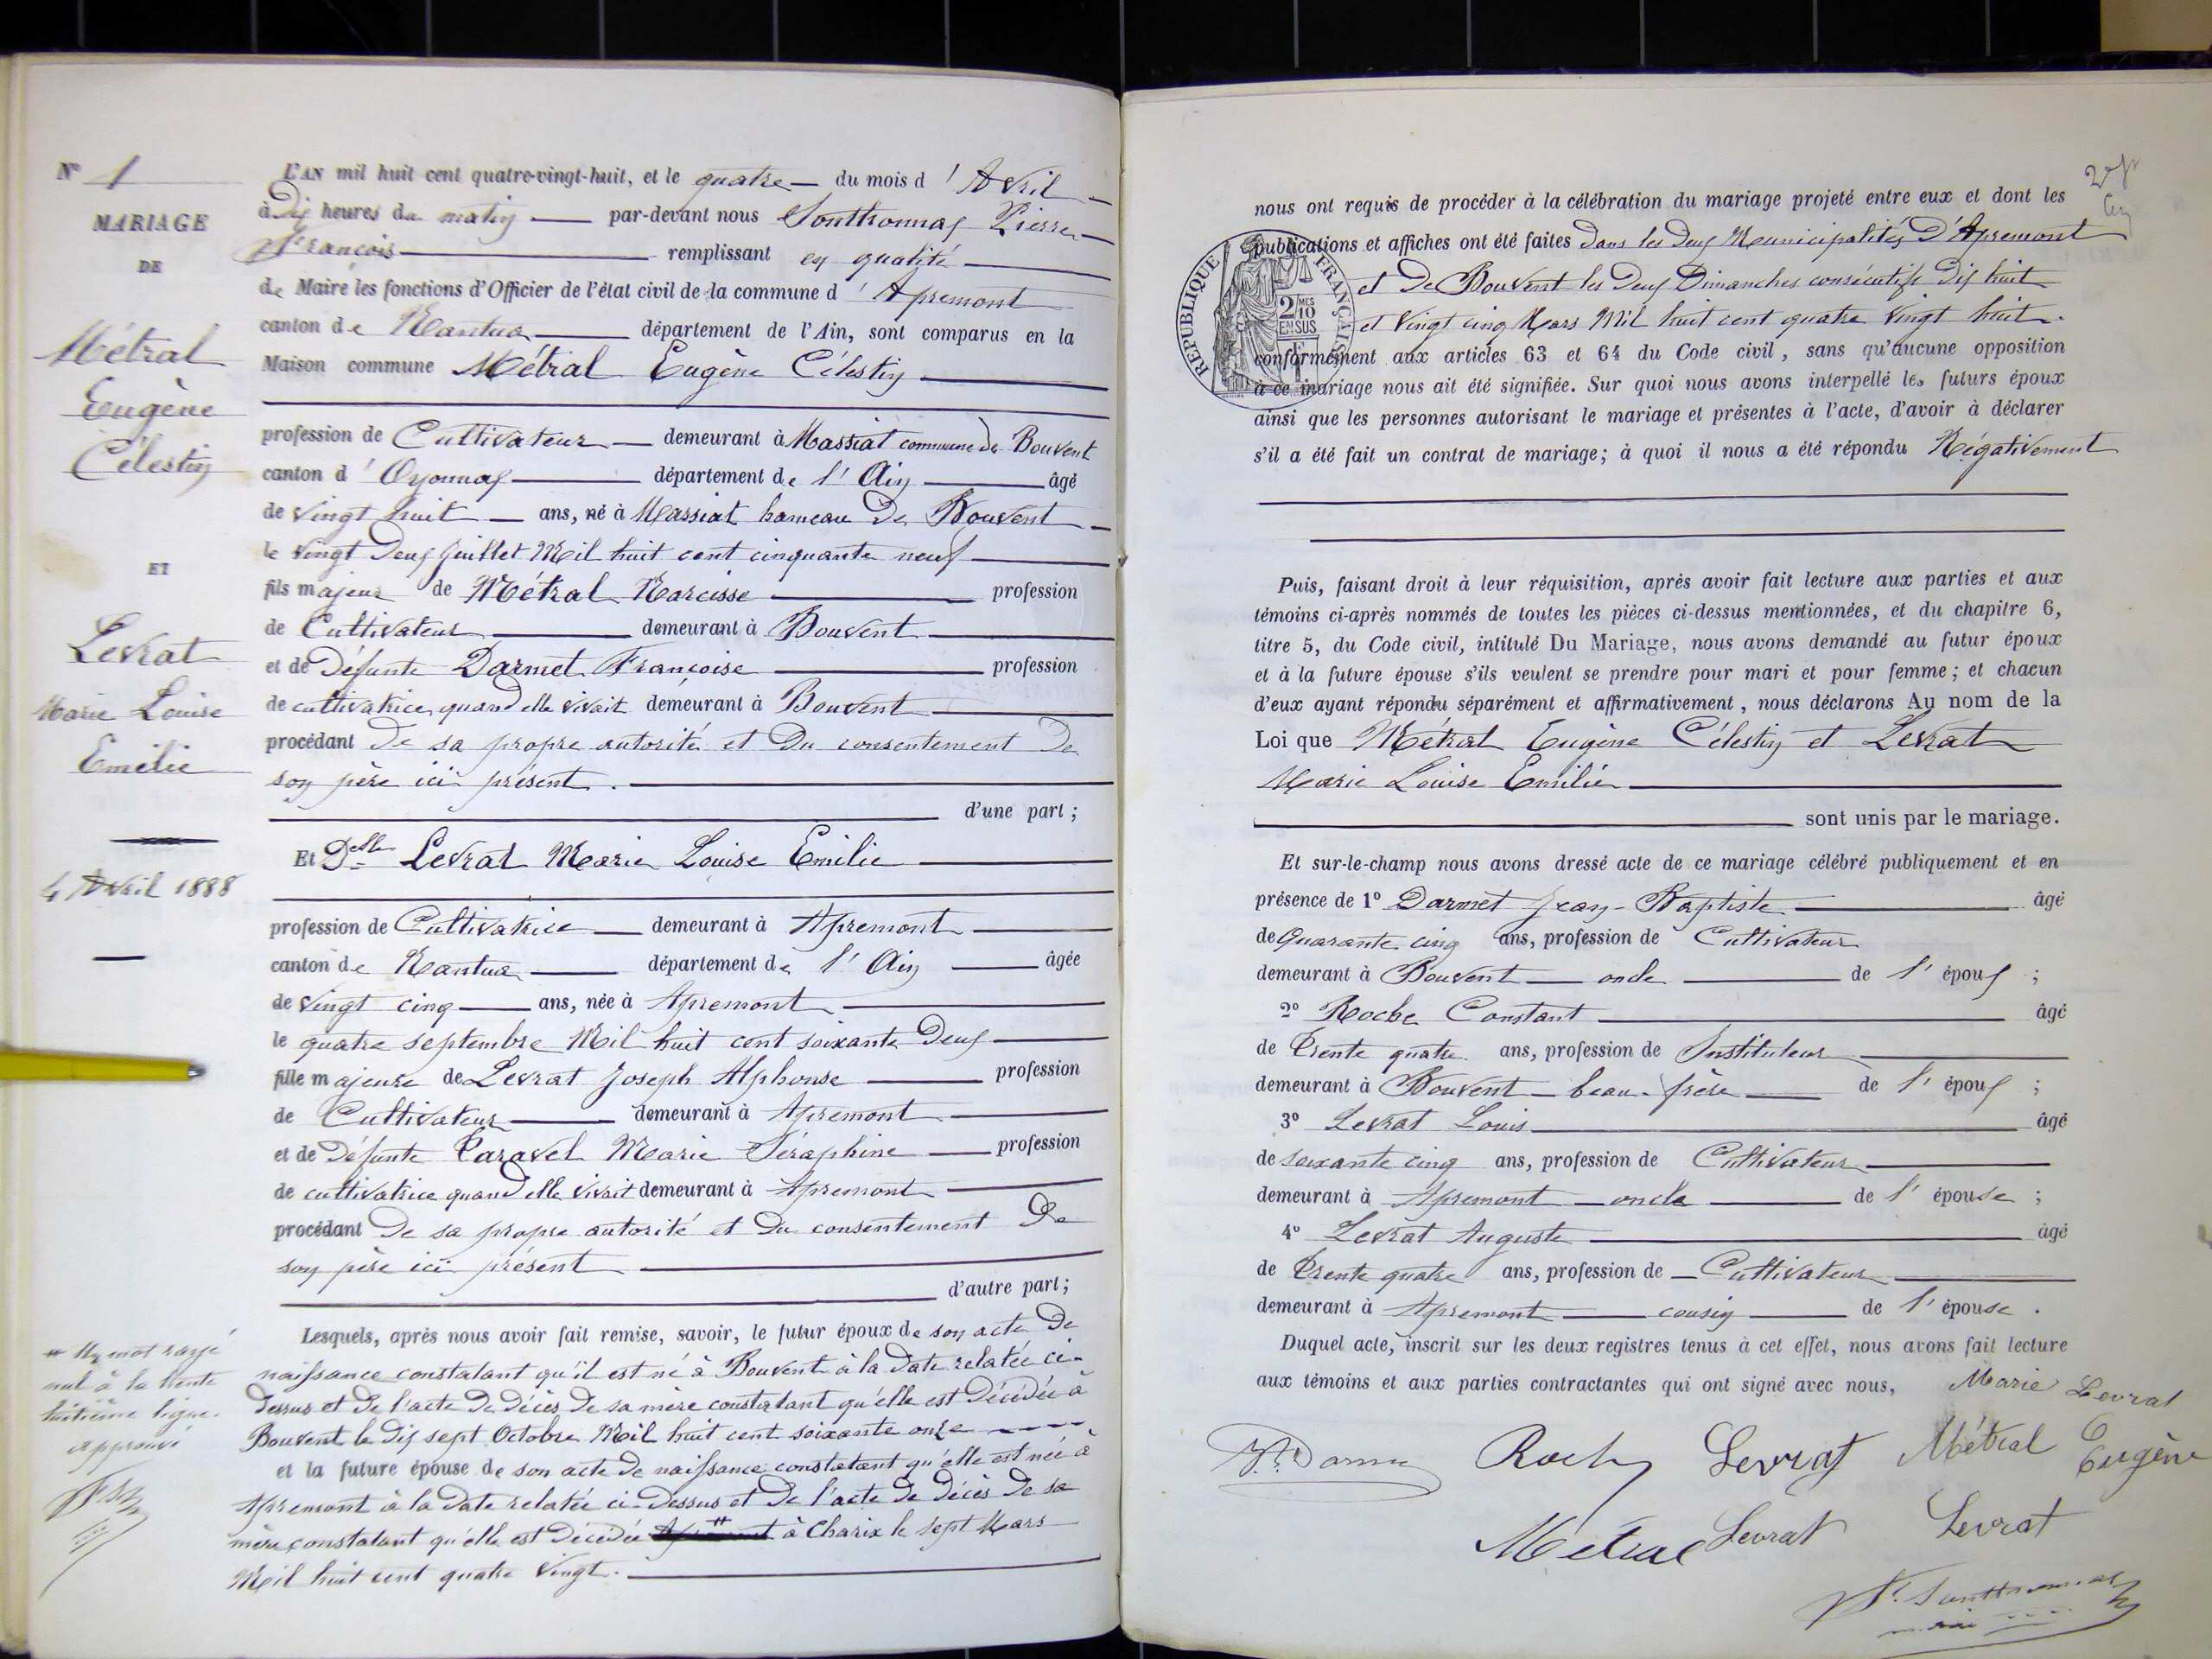 N° 1
MARIAGE
DE
Métral
Eugène
Célestin
ET
Levrat
Marie Louise
Emilie
4 Avril 1888
# Un mot rayé
nul à la trente
huitième ligne.
approuvé
L'AN mil huit cent quatre-vingt-huit, et le quatre du mois d'Avril
à Dix heures du matin par-devant nous Sonthonnax Pierre
François remplissant en qualité
de Maire les fonctions d'Officier de l'état civil de la commune d'Apremont
canton de Nantua département de l'Ain, sont comparus en la
Maison commune Métral Eugène Célestin
profession de Cultivateur demeurant à Massiat commune de Bouvent
canton d'Oyonnax département de l'Ain âgé
de vingt huit ans, né à Massiat hameau de Bouvent
le vingt deux Juillet Mil huit cent cinquante neuf
fils majeur de Métral Narcisse profession
de Cultivateur demeurant à Bouvent
et de Défunte Darmet Françoise profession
de cultivatrice quand elle vivait demeurant à Bouvent
procédant de sa propre autorité et du consentement de
son père ici présent.
d'une part;
Et Delle Levrat Marie Louise Emilie
profession de Cultivatrice demeurant à Apremont
canton de Nantua département de l'Ain âgée
de vingt cinq ans, née à Apremont
le quatre septembre Mil huit cent soixante Deux
fille majeure de Levrat Joseph Alphonse profession
de Cultivateur demeurant à Apremont
et de Défunte Caravel Marie Séraphine profession
de cultivatrice quand elle vivait demeurant à Apremont
procédant de sa propre autorité et du consentement de
son père ici présent
d'autre part;
Lesquels, après nous avoir fait remise, savoir, le futur époux de son acte de
naissance constatant qu'il est né à Bouvent à la date relatée ci-
dessus et de l'acte de décès de sa mère constatant qu'elle est décédée à
Bouvent le dix sept Octobre Mil huit cent soixante onze
et la future épouse de son acte de naissance constatant qu'elle est née à
Apremont à la date relatée ci-dessus et de l'acte de décès de sa
mère constatant qu'elle est décédée # à Charix le sept Mars
Mil huit cent quatre vingt.
RÉPUBLIQUE FRANÇAISE
2 MES
10
EN SUS
nous ont requis de procéder à la célébration du mariage projeté entre eux et dont les
publications et affiches ont été faites dans les deux Municipalités d'Apremont
et de Bouvent les deux Dimanches consécutifs dix huit
et vingt cinq Mars Mil huit cent quatre vingt huit.
conformément aux articles 63 et 64 du Code civil, sans qu'aucune opposition
à ce mariage nous ait été signifiée. Sur quoi nous avons interpellé les futurs époux
ainsi que les personnes autorisant le mariage et présentes à l'acte, d'avoir à déclarer
s'il a été fait un contrat de mariage; à quoi il nous a été répondu Négativement
Puis, faisant droit à leur réquisition, après avoir fait lecture aux parties et aux
témoins ci-après nommés de toutes les pièces ci-dessus mentionnées, et du chapitre 6,
titre 5, du Code civil, intitulé Du Mariage, nous avons demandé au futur époux
et à la future épouse s'ils veulent se prendre pour mari et pour femme; et chacun
d'eux ayant répondu séparément et affirmativement, nous déclarons Au nom de la
Loi que Métral Eugène Célestin et Levrat
Marie Louise Emilie
sont unis par le mariage.
Et sur-le-champ nous avons dressé acte de ce mariage célébré publiquement et en
présence de 1° Darmet Jean-Baptiste âgé
de Quarante cinq ans, profession de Cultivateur
demeurant à Bouvent oncle de l'époux;
2° Roche Constant âgé
de trente quatre ans, profession de Instituteur
demeurant à Bouvent beau-frère de l'époux;
3° Levrat Louis âgé
de soixante cinq ans, profession de Cultivateur
demeurant à Apremont oncle de l'épouse;
4° Levrat Auguste âgé
de trente quatre ans, profession de Cultivateur
demeurant à Apremont cousin de l'épouse.
Duquel acte, inscrit sur les deux registres tenus à cet effet, nous avons fait lecture
aux témoins et aux parties contractantes qui ont signé avec nous, Marie Levrat
Levrat Métral Eugène
Métral Levrat Levrat